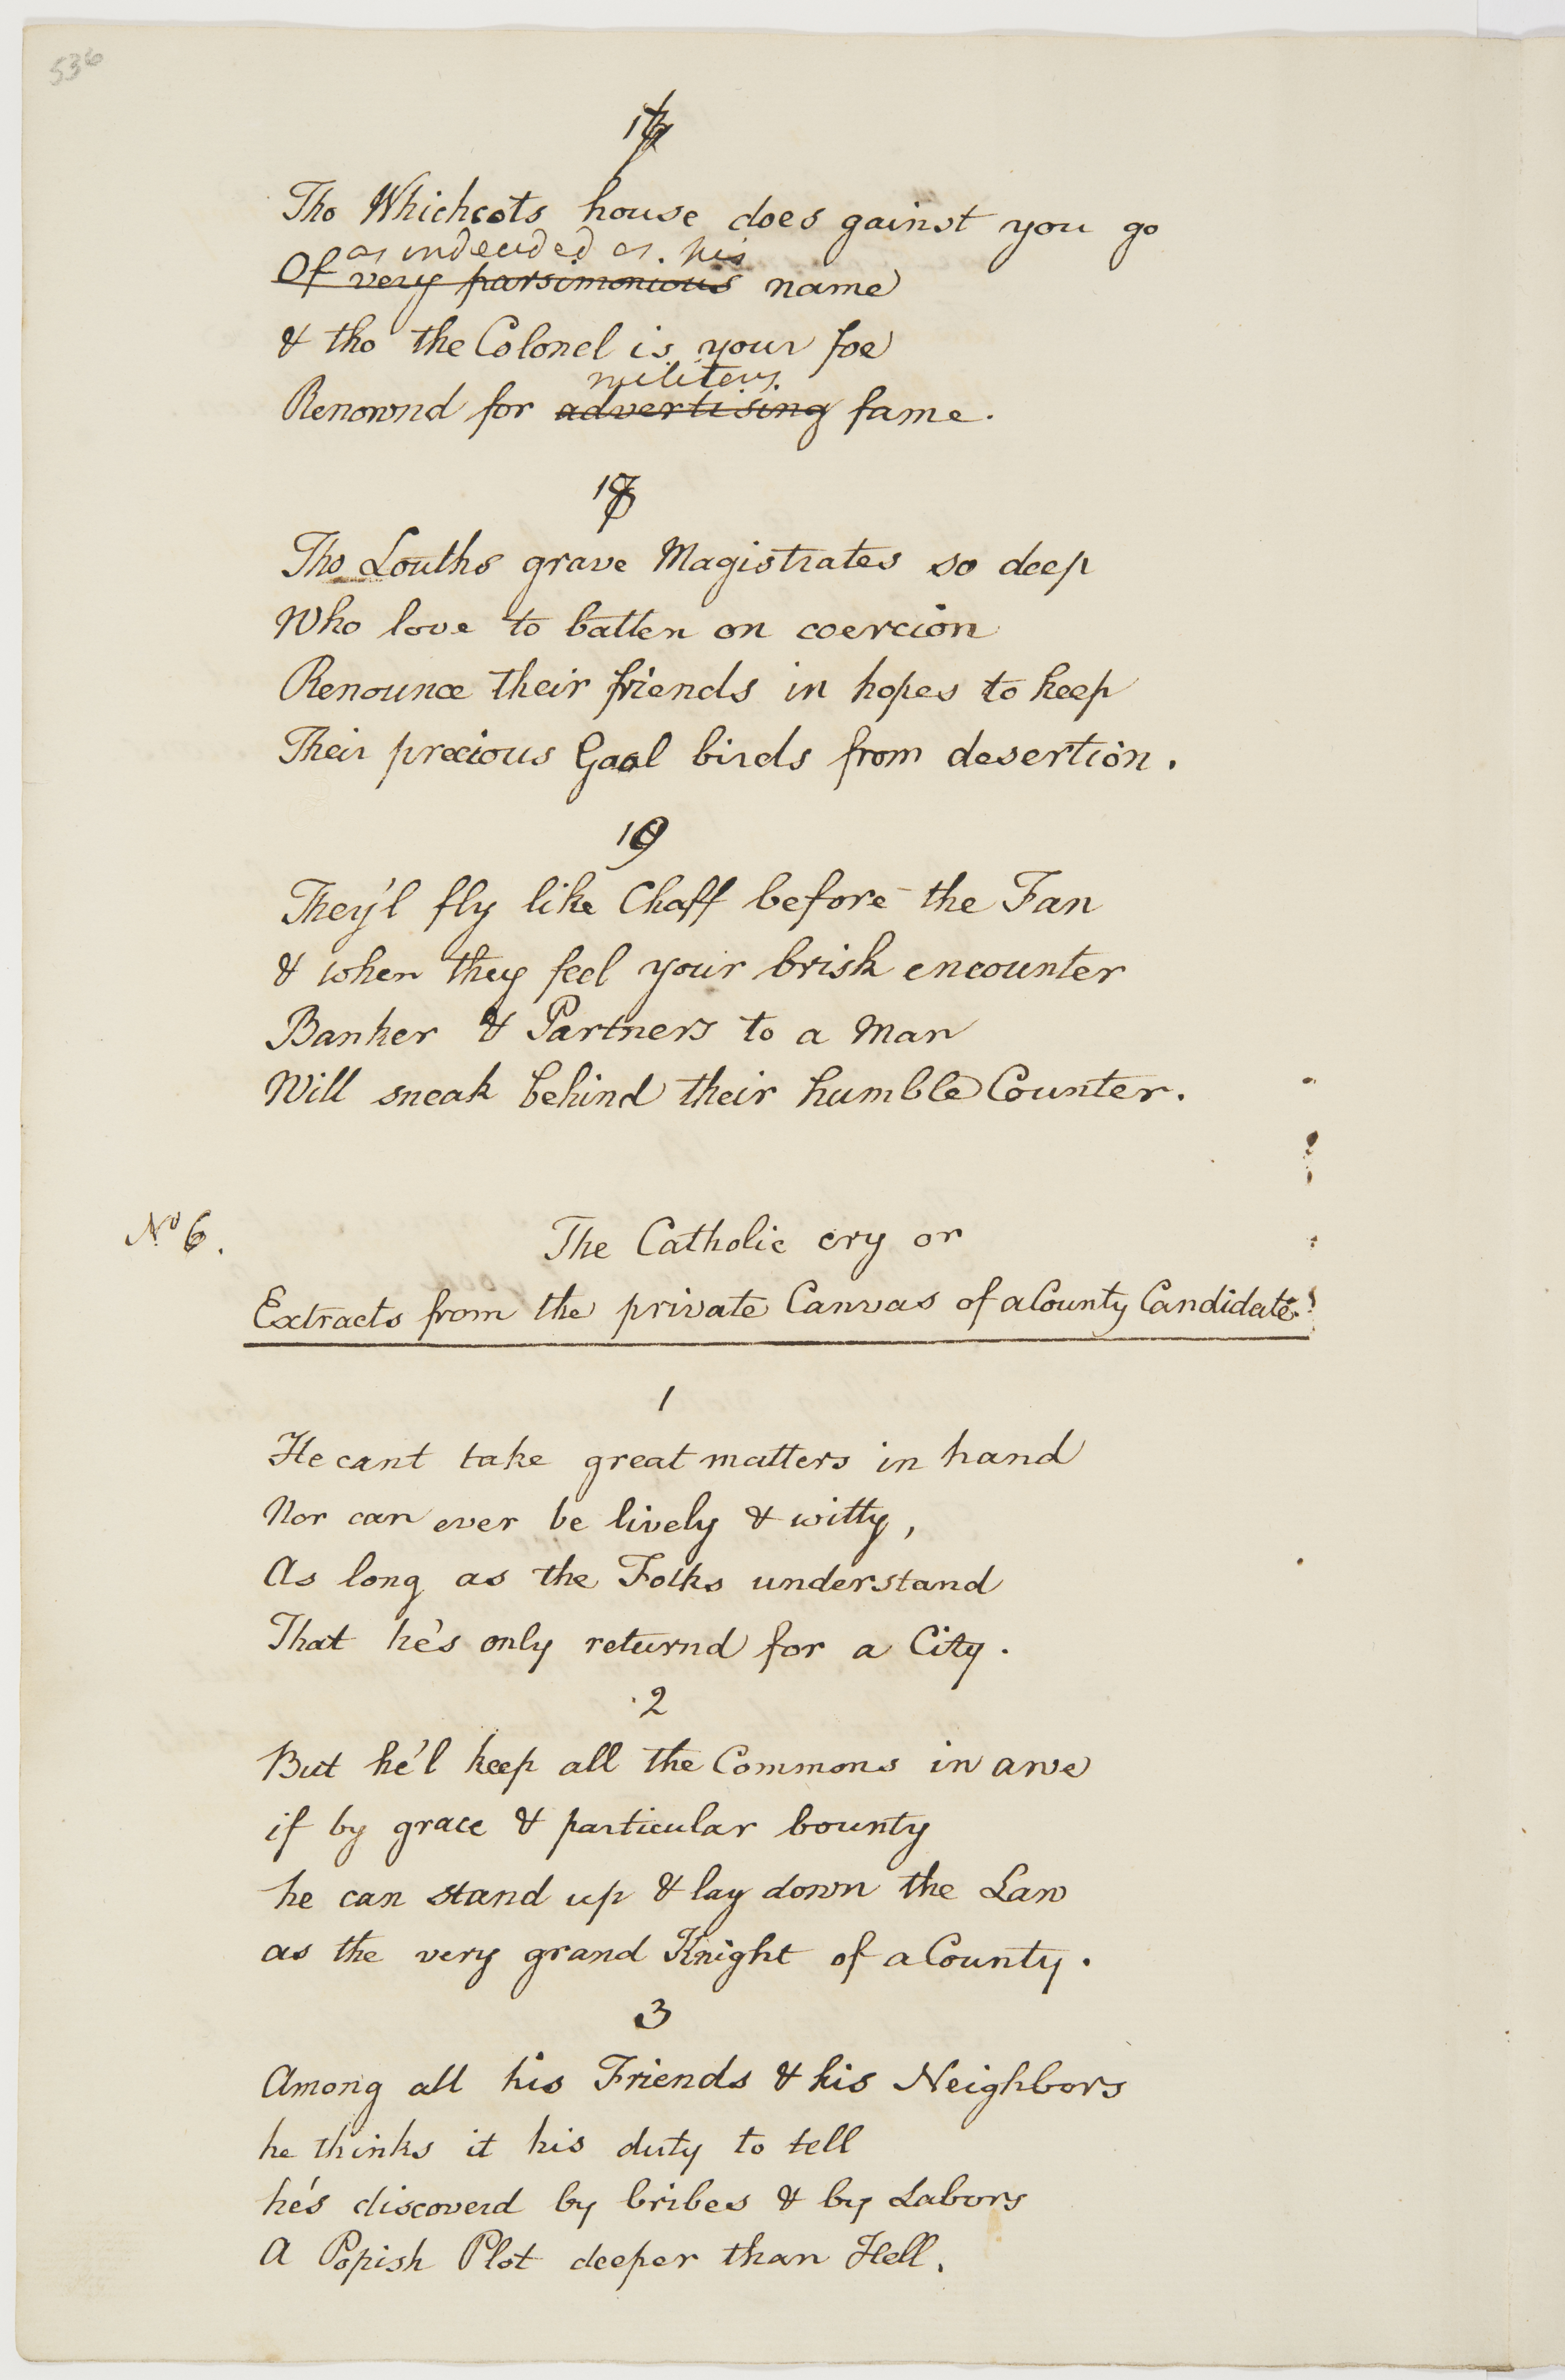 536
17
Tho Whichcots house does gainst you go
as undecided as his
Of very parsimonious name
& tho the Colonel is your foe
military
Renownd for advertising fame.
18
Tho Louths grave Magistrates so deep
Who love to batten on coercion
Renounce their friends in hopes to keep
Their precious Gaol birds from desertion.
19
They'l fly like Chaff before the Fan
& when they feel your brisk encounter
Banker & Partners to a Man
Will sneak behind their humble Counter.
No 6.
The Catholic cry or
Extracts from the private Canvas of a County Candidate.
1
He cant take great matters in hand
Nor can ever be lively & witty,
As long as the Folks understand
That he's only returnd for a City.
2
But he'l keep all the Commons in awe
if by grace & particular bounty
he can stand up & lay down the Law
as the very grand Knight of a County.
3
Among all his Friends & his Neighbors
he thinks it his duty to tell
he's discoverd by bribes & by Labors
A Popish Plot deeper than Hell.